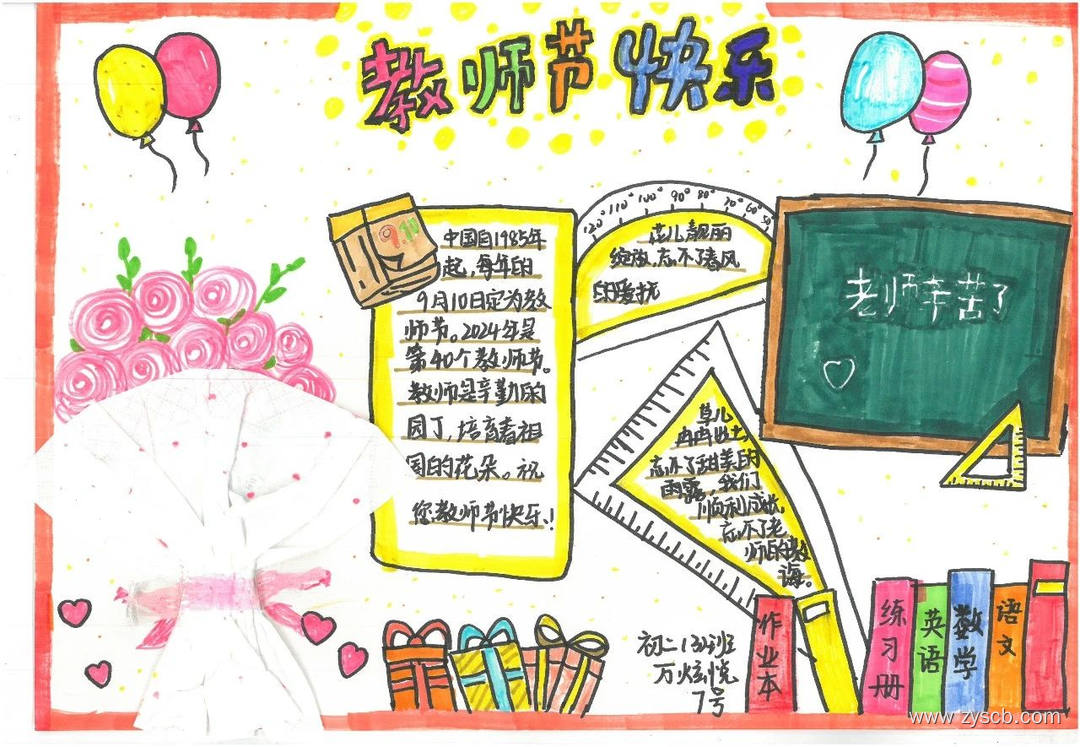 教师节快乐
9.10
中国自1985年
起,每年的
9月10日定为教
师节。2024年是
第40个教师节。
教师是辛勤的
园丁,培育着祖
国的花朵。祝
您教师节快乐!
120° 110° 100° 90° 80° 70° 60° 50°
花儿靓丽
绽放,忘不了春风
的爱抚
草儿
冉冉出土,
忘不了甜美的
雨露,我们
顺利成长,
忘不了老
师的教
诲。
老师辛苦了
初二13班
万炫悦
7号
作业本
练习册
英语
数学
语文
www.zyscb.com